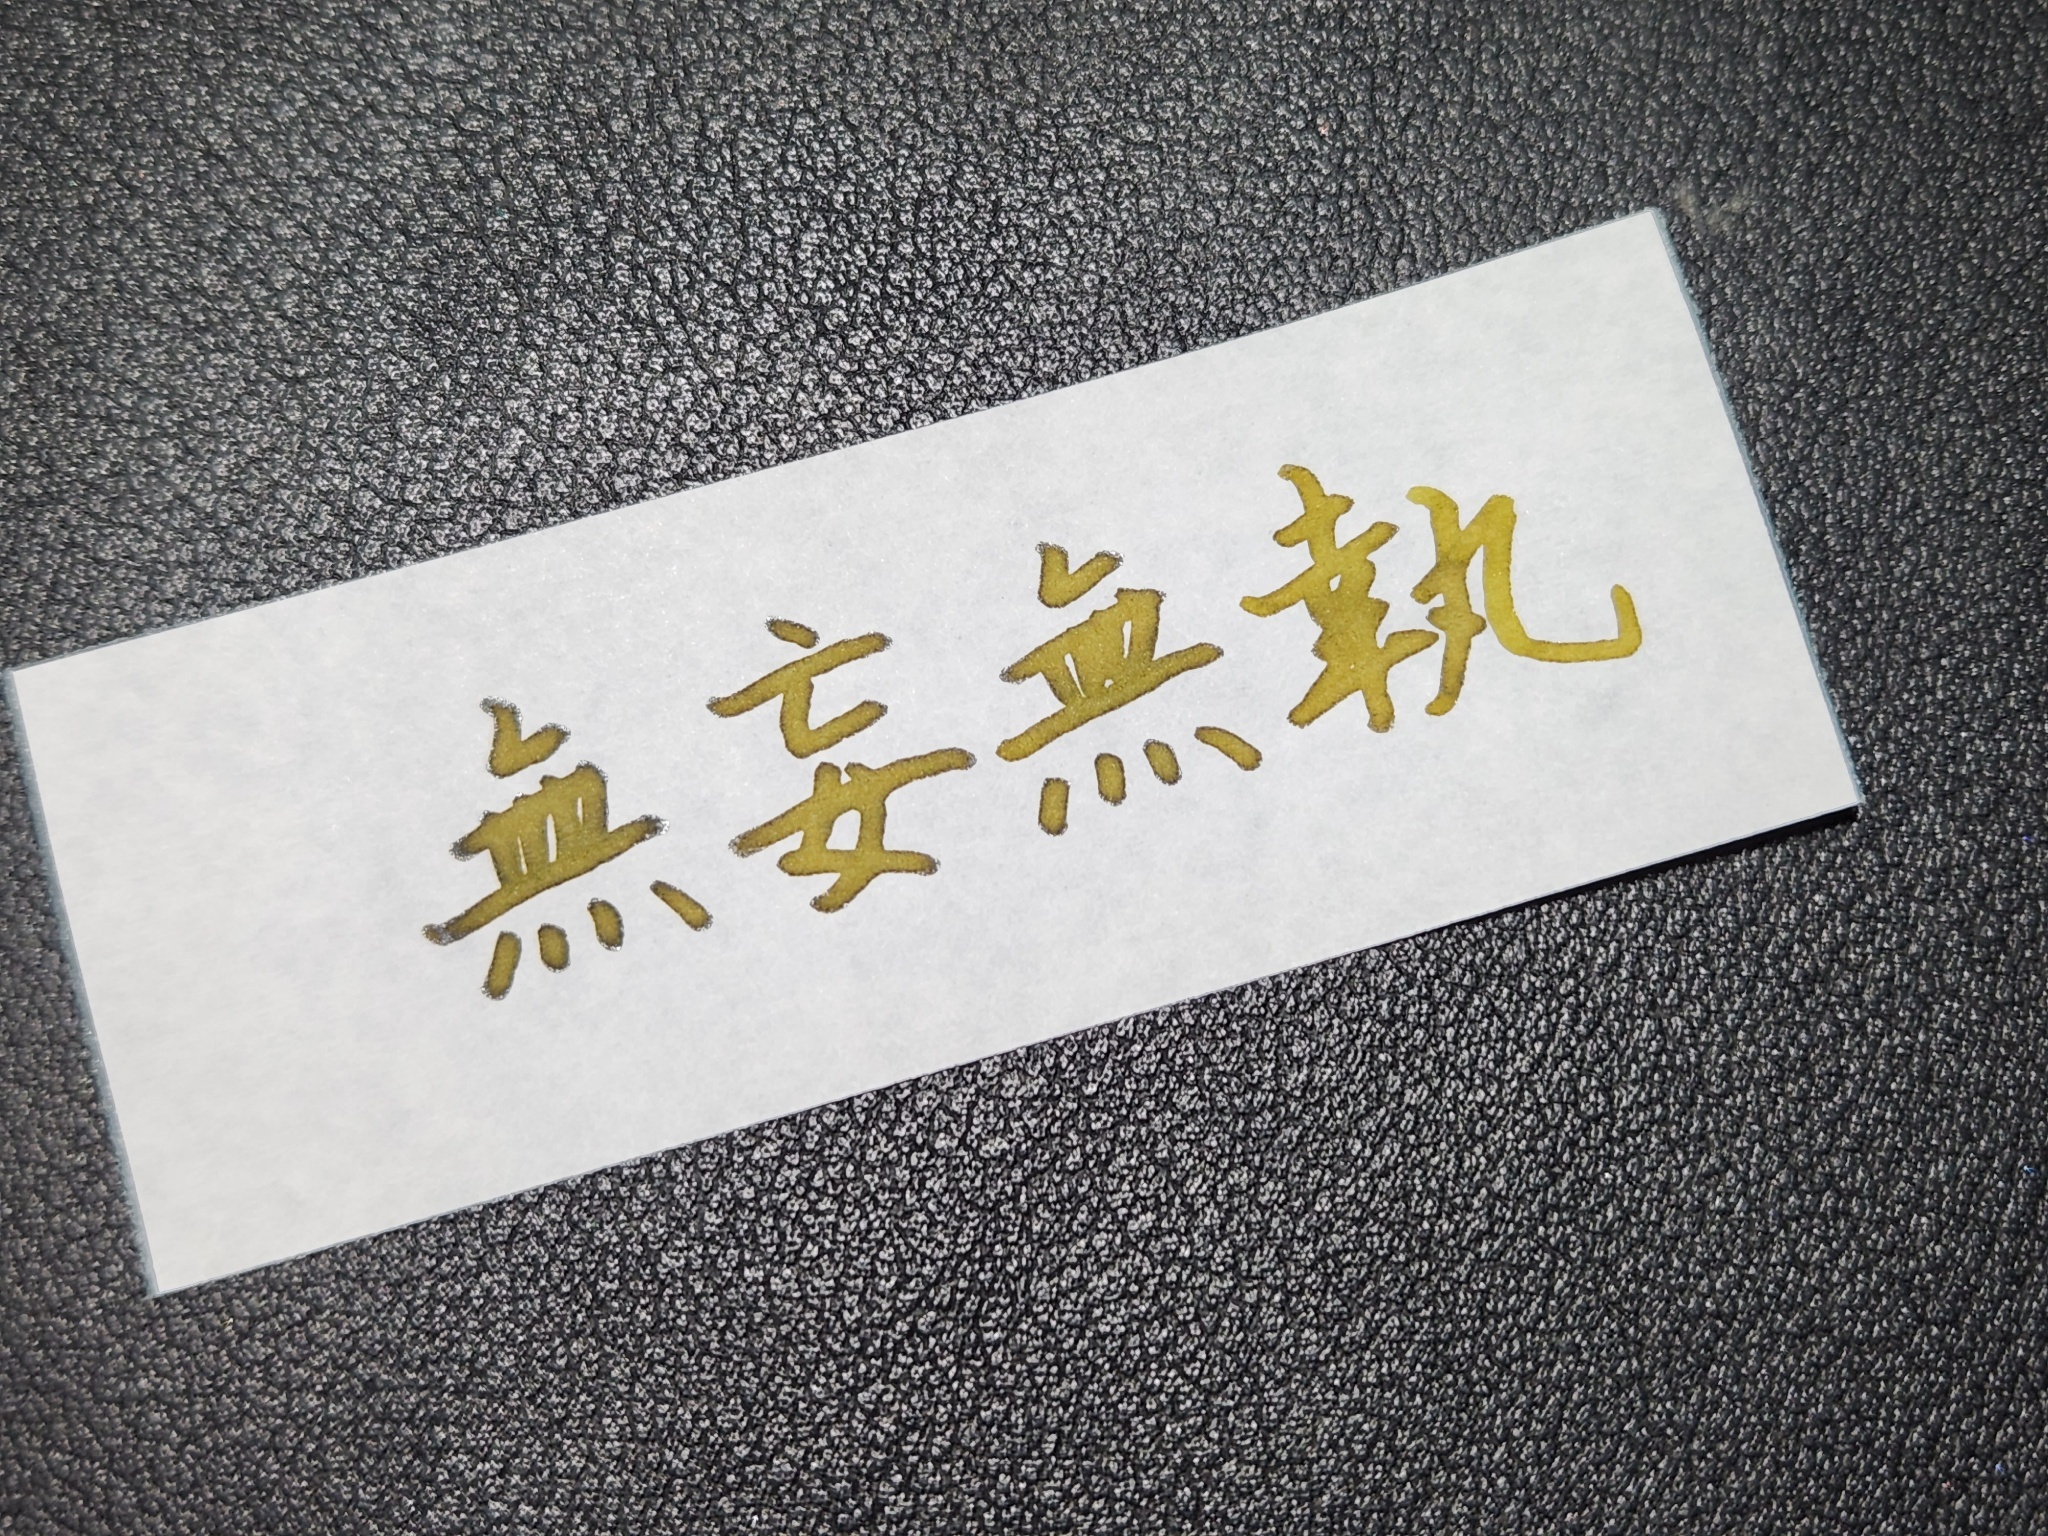 無妄無執